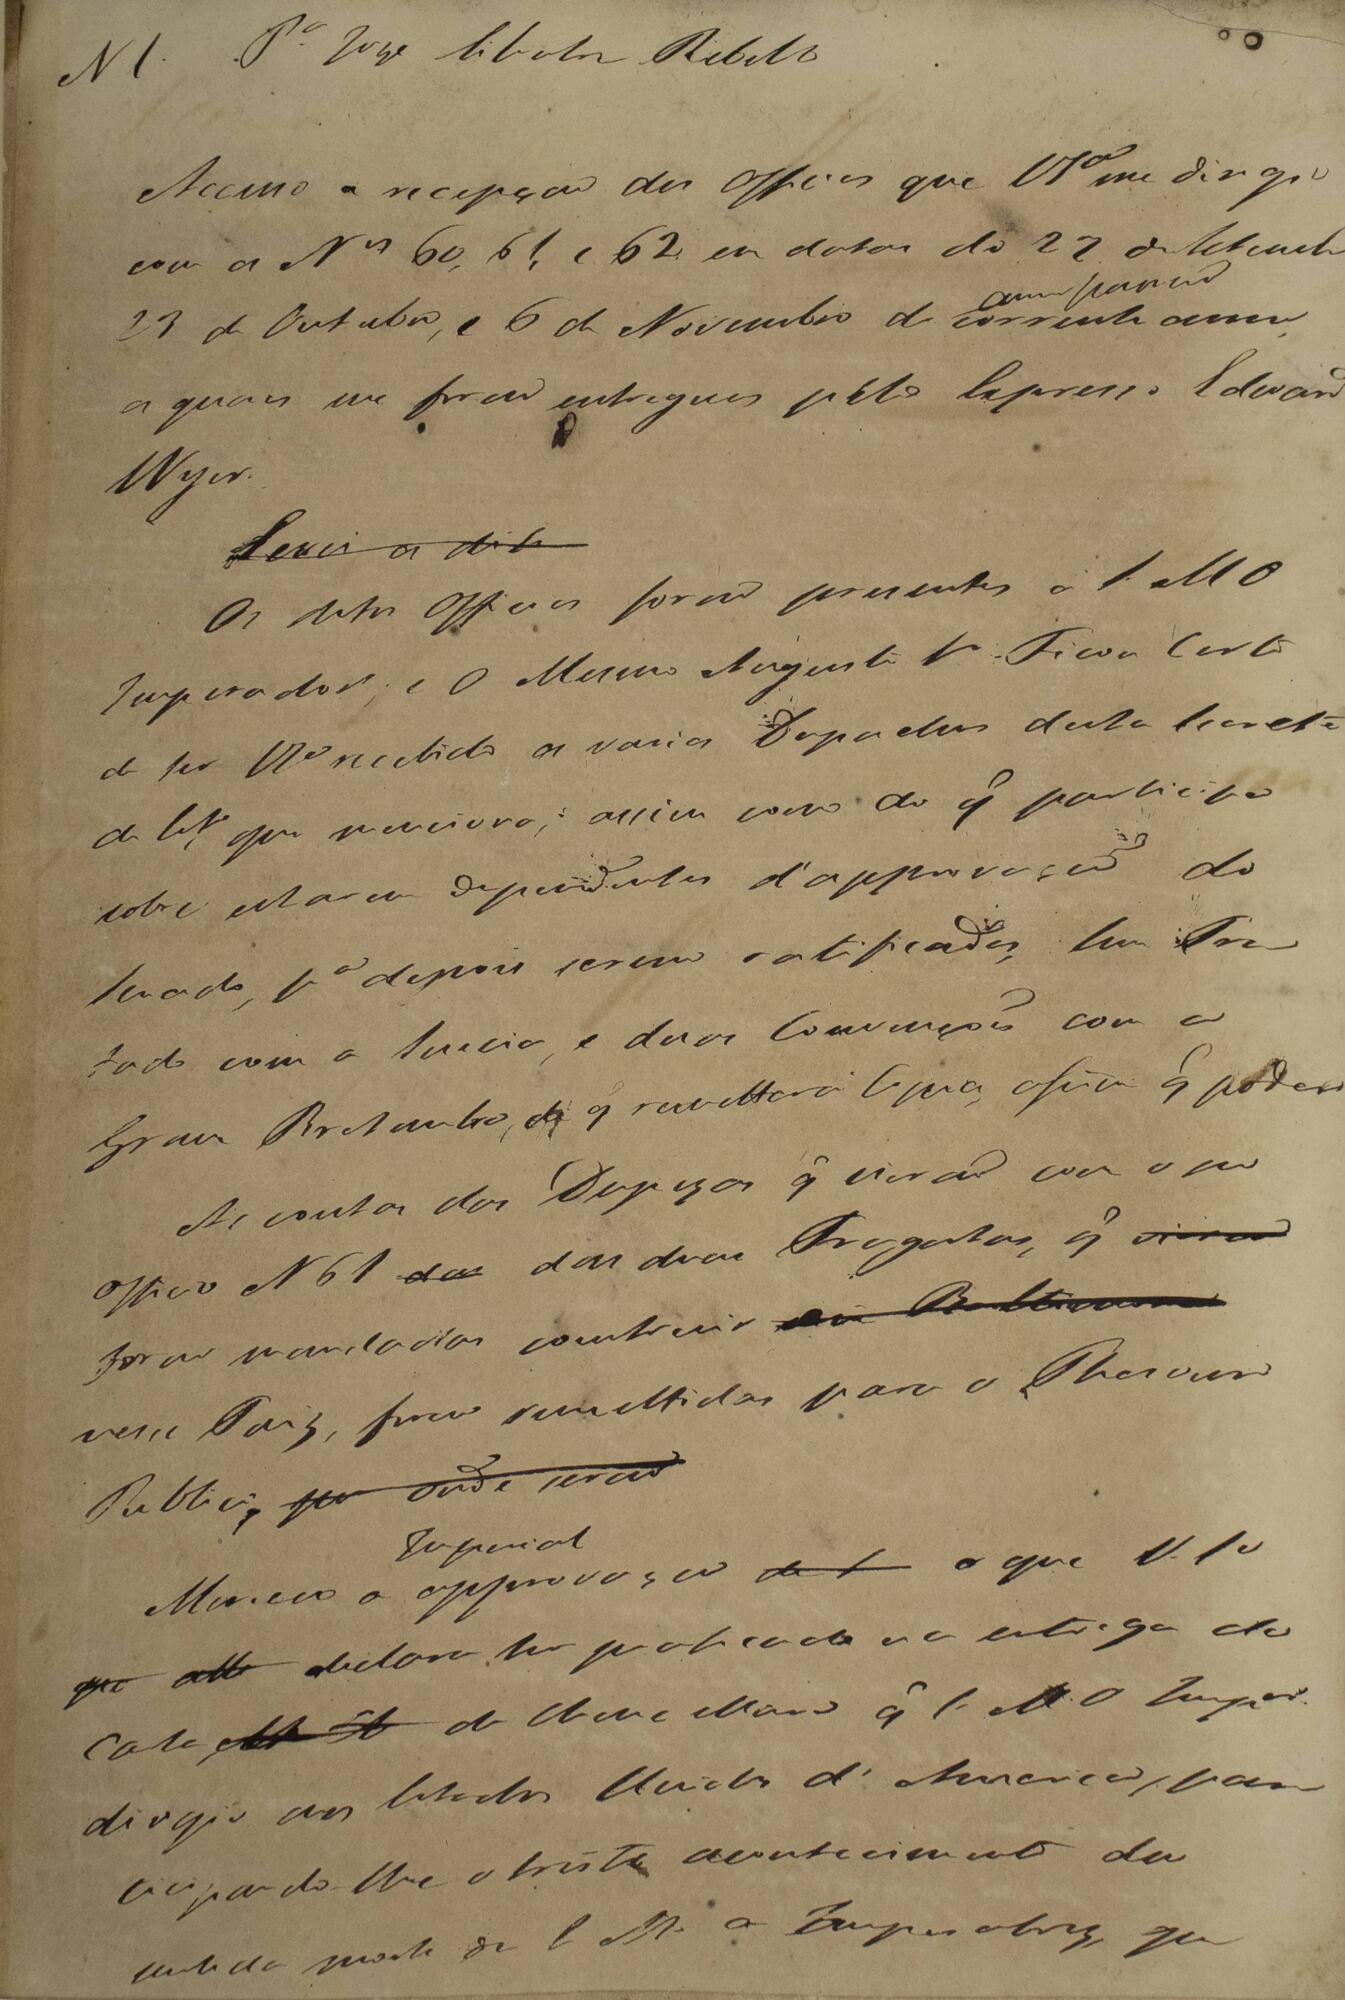 N 1. Pª Joze Silvestre Rebello
Accuso a recepção dos Officios que VSª me dirigio
com os Nos 60, 61, e 62 em datas do 27 de Setembro
23 de Outubro, e 6 de Novembro do corrente anno,
anno passado
os quaes me forão entregues pelo Expresso Eduard
Wyer.
Levei os ditos
Os ditos Officios forão presentes a S. M O
Imperador, e O Mesmo Augusto Sr. Ficou Certo
de ter VSª recebido os varios Despachos desta Secretª
de Estº que menciona; assim como do q̃ participa
sobre estarem dependentes d'approvação do
Senado, pª depois serem ratificados, hum Tra
tado com a Suecia, e duas Convenções com a
Gram Bretanha, de q̃ remetterá Copia, assim q̃ poder
As contas das Despezas q̃ vierão com o seu
Officio N 61 das das duas Fragatas, q̃ vierão
forão mandadas construir em Baltimore
nesse Paiz, forão remettidas para o Thesouro
Publico, por onde serão
Imperial
Mereceo a approvação de S o que V. Sª
declara ter praticado na entrega da
Carta de Chancellaria q̃ S. M. O Imper.
dirigio aos Estados Unidos d'America, parti
cipando-lhe o triste acontecimento da
sentida morte de S. M. a Imperatriz, que